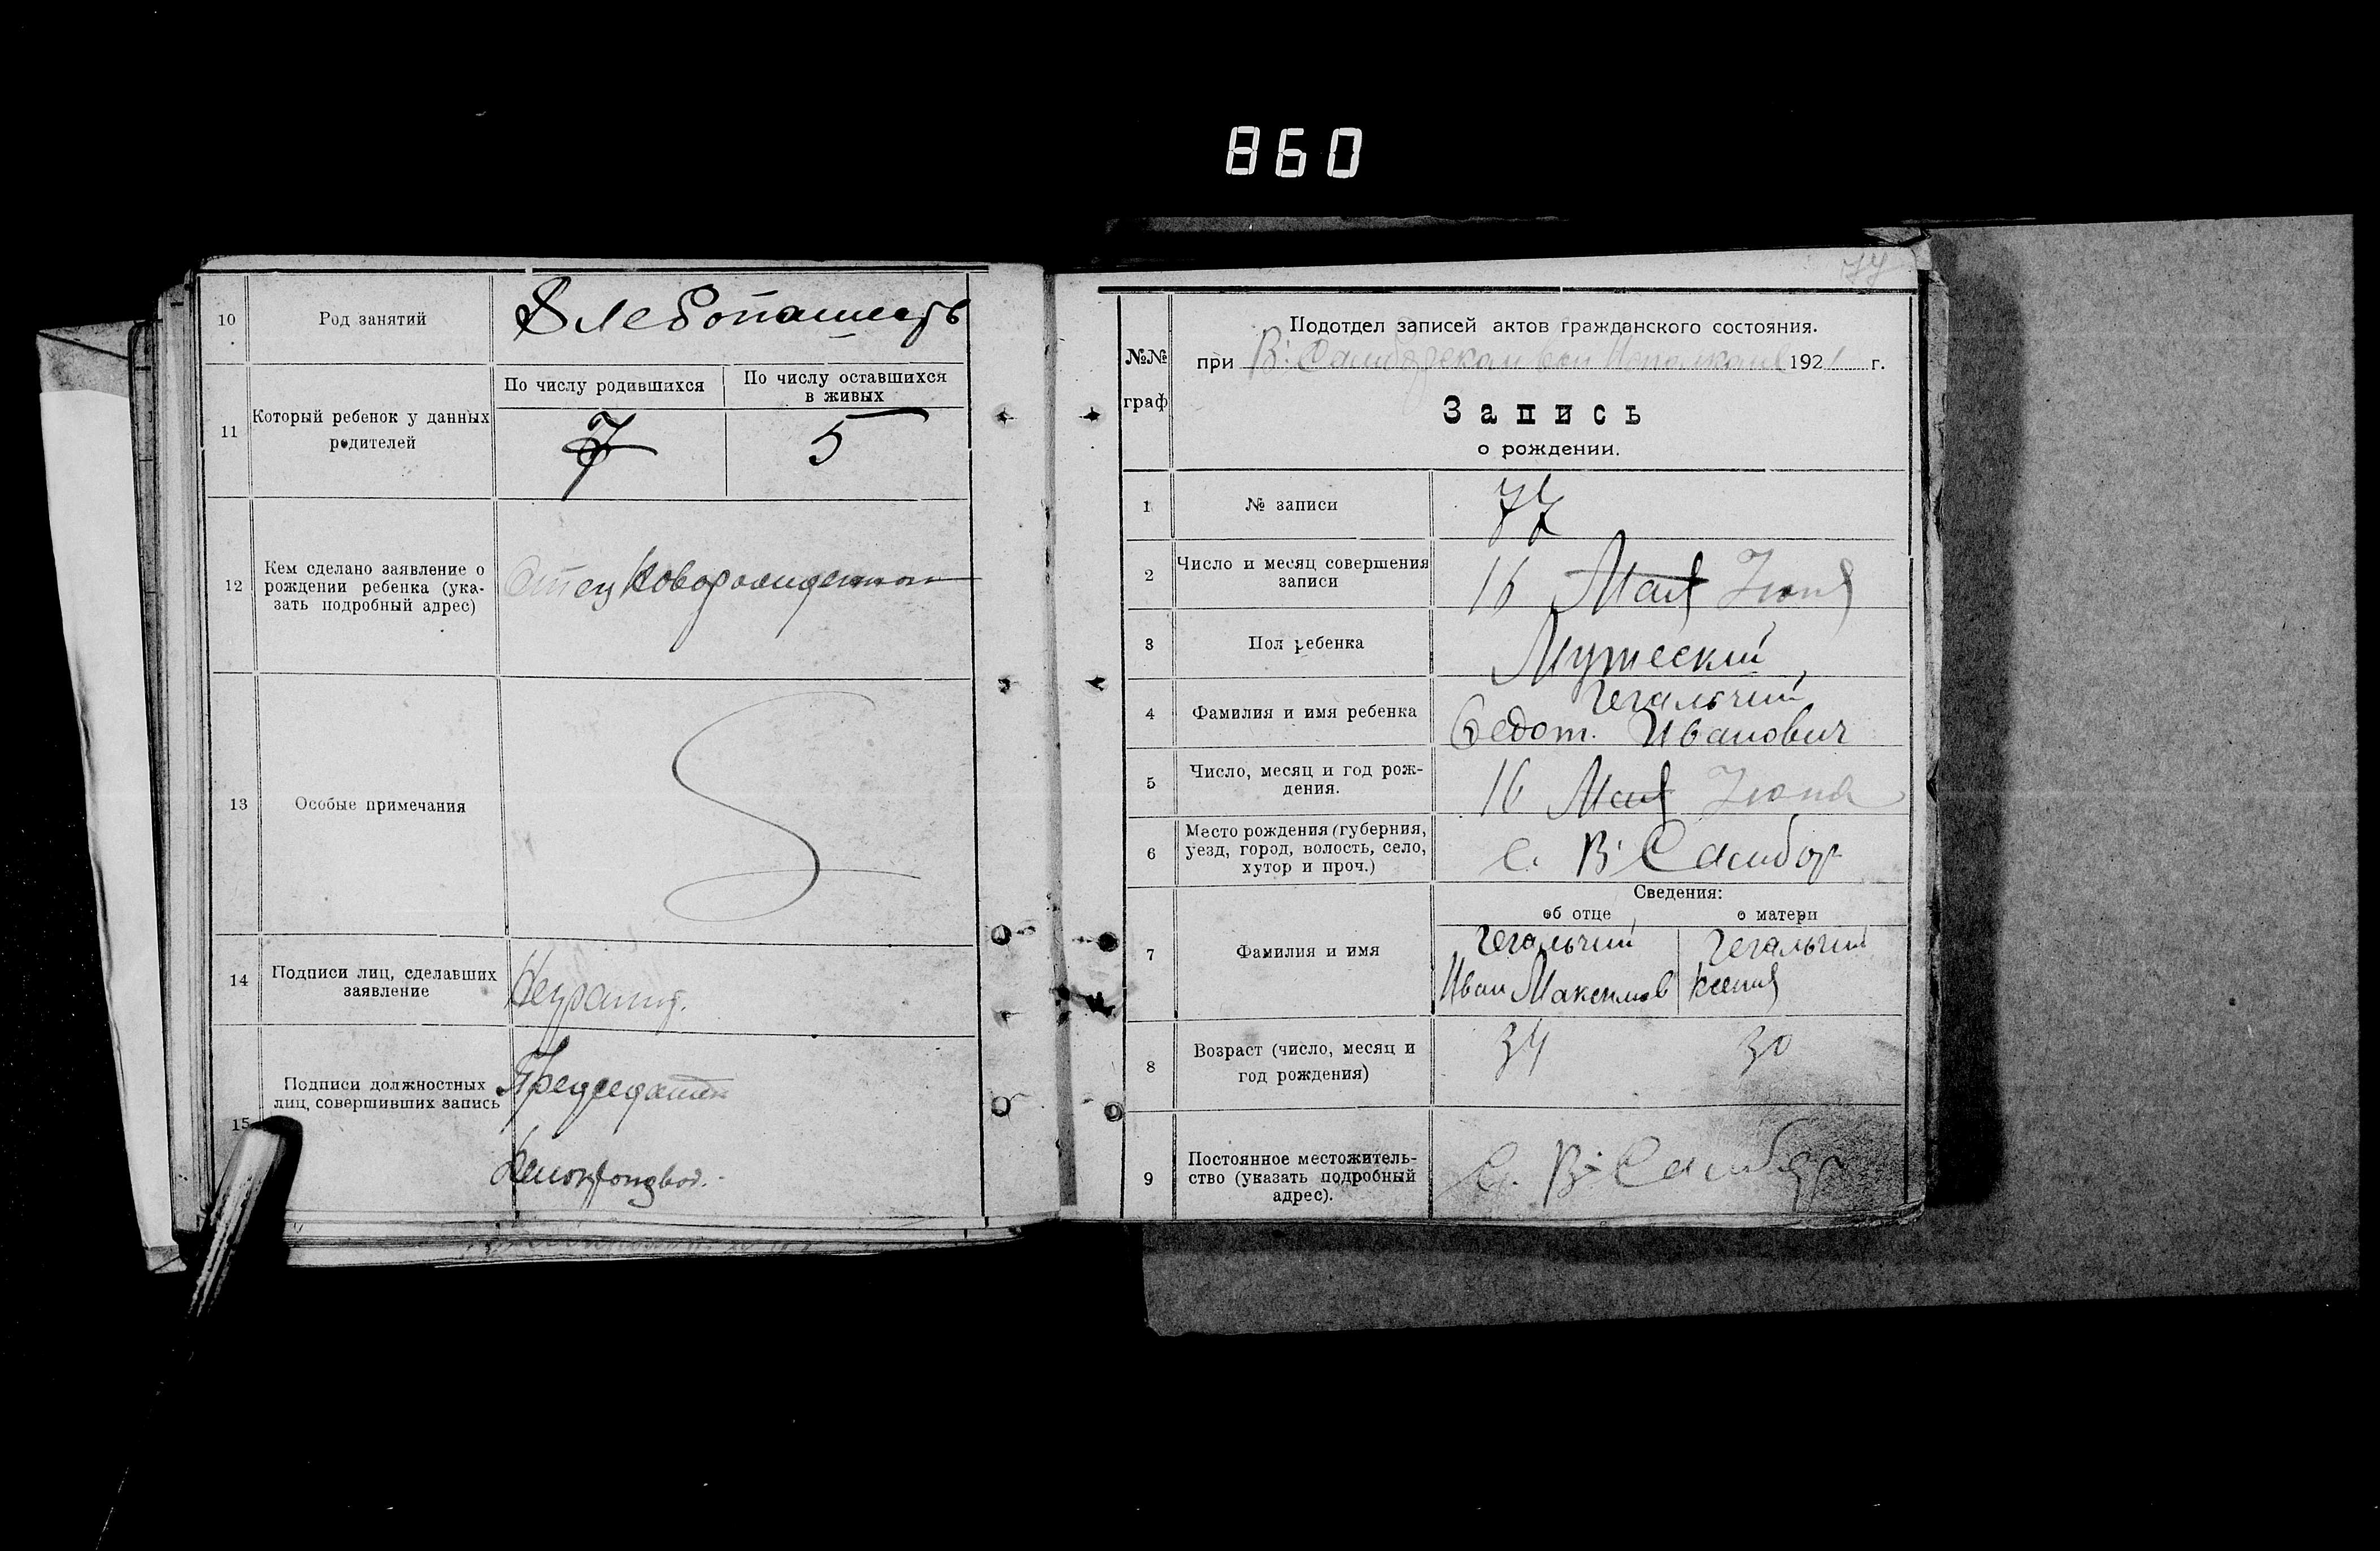 860
10
Род занятий
Хлебопашест
11
Который ребенок у данных
родителей
По числу родившихся
По числу оставшихся
в живых
7
5
12
Кем сделано заявление о
рождении ребенка (ука-
зать подробный адрес)
Отец Новорожденного
13
Особые примечания
14
Подписи лиц, сделавших
заявление
Неграмот.
15
Подписи должностных
лиц, совершивших запись
Председатель
77
№№
граф
Подотдел записей актов гражданского состояния.
при В. Самборском вол Исполкоме 1921 г.
Запись
о рождении.
1
№ записи
77
2
Число и месяц совершения
записи
16 Мая Июня
3
Пол ребенка
Мужеский
4
Фамилия и имя ребенка
Чегальчий
Федот. Иванович
5
Число, месяц и год рож-
дения.
16 Мая Июня
6
Место рождения (губерния,
уезд, город, волость, село,
хутор и проч.)
с. В. Самбор
Сведения:
об отце
о матери
7
Фамилия и имя
Чегальчий
Иван Максимов
Чегальчий
Ксения
8
Возраст (число, месяц и
год рождения)
34
30
9
Постоянное местожитель-
ство (указать подробный
адрес).
С. В. Самбор